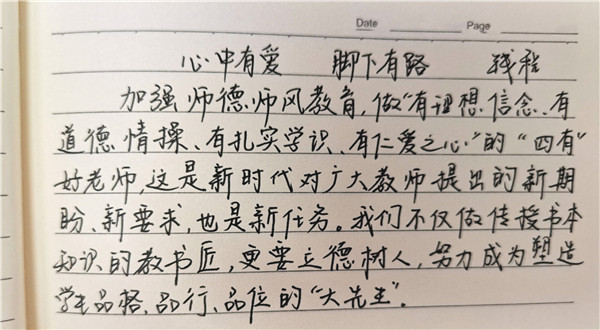 Date Page
心中有爱 脚下有路 钱程
加强师德师风教育,做“有理想信念、有
道德情操、有扎实学识、有仁爱之心”的“四有”
好老师,这是新时代对广大教师提出的新期
盼、新要求,也是新任务。我们不仅做传授书本
知识的教书匠,更要立德树人,努力成为塑造
学生品格、品行、品位的“大先生”.